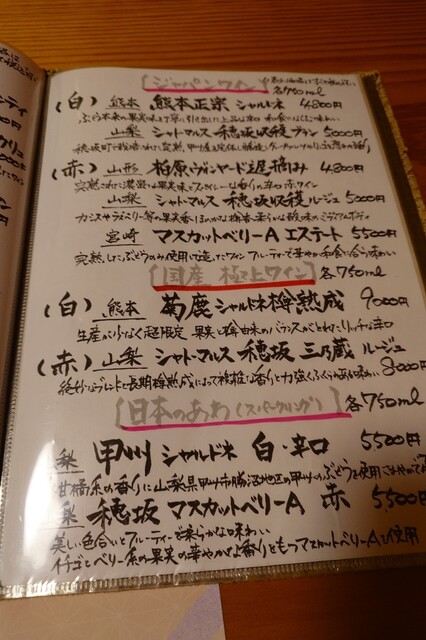 ジャパンワイン 各750ml
(白) 熊本 熊本正宗 シャルドネ 4800円
山梨 シャトーマルス 穂坂収穫 ブラン 5000円
(赤) 山形 柏原ヴィンヤード遅摘み 4800円
完熟された濃密な果実味とスパイシーな香りの辛口赤ワイン
山梨 シャトーマルス 穂坂収穫ルージュ 5000円
宮崎 マスカットベリーA エステート 5500円
完熟したぶどうのみ使用して造ったワイン フルーティーで華やか和食に合う味わい
国産 極上ワイン 各750ml
(白) 熊本 菊鹿シャルドネ樽熟成 9000円
生産が少なく超限定 果実と樽由来のバランスがとれたリッチな辛口
(赤) 山梨 シャトーマルス 穂坂 三乃蔵 ルージュ 8000円
絶妙なブレンドと長期樽熟成によって複雑な香りと力強くふくらみある味わい
日本のあわ(スパークリング) 各750ml
梨 甲州 シャルドネ 白・辛口 5,500円
甘橘系の香りに山梨県甲州市勝沼地区の甲州のぶどうを使用
梨 穂坂 マスカットベリーA 赤 5,500
美しい色合いとフルーティーで柔らかな味わい
イチゴとベリー系の果実の華やかな香りをもつマスカットベリーAを使用